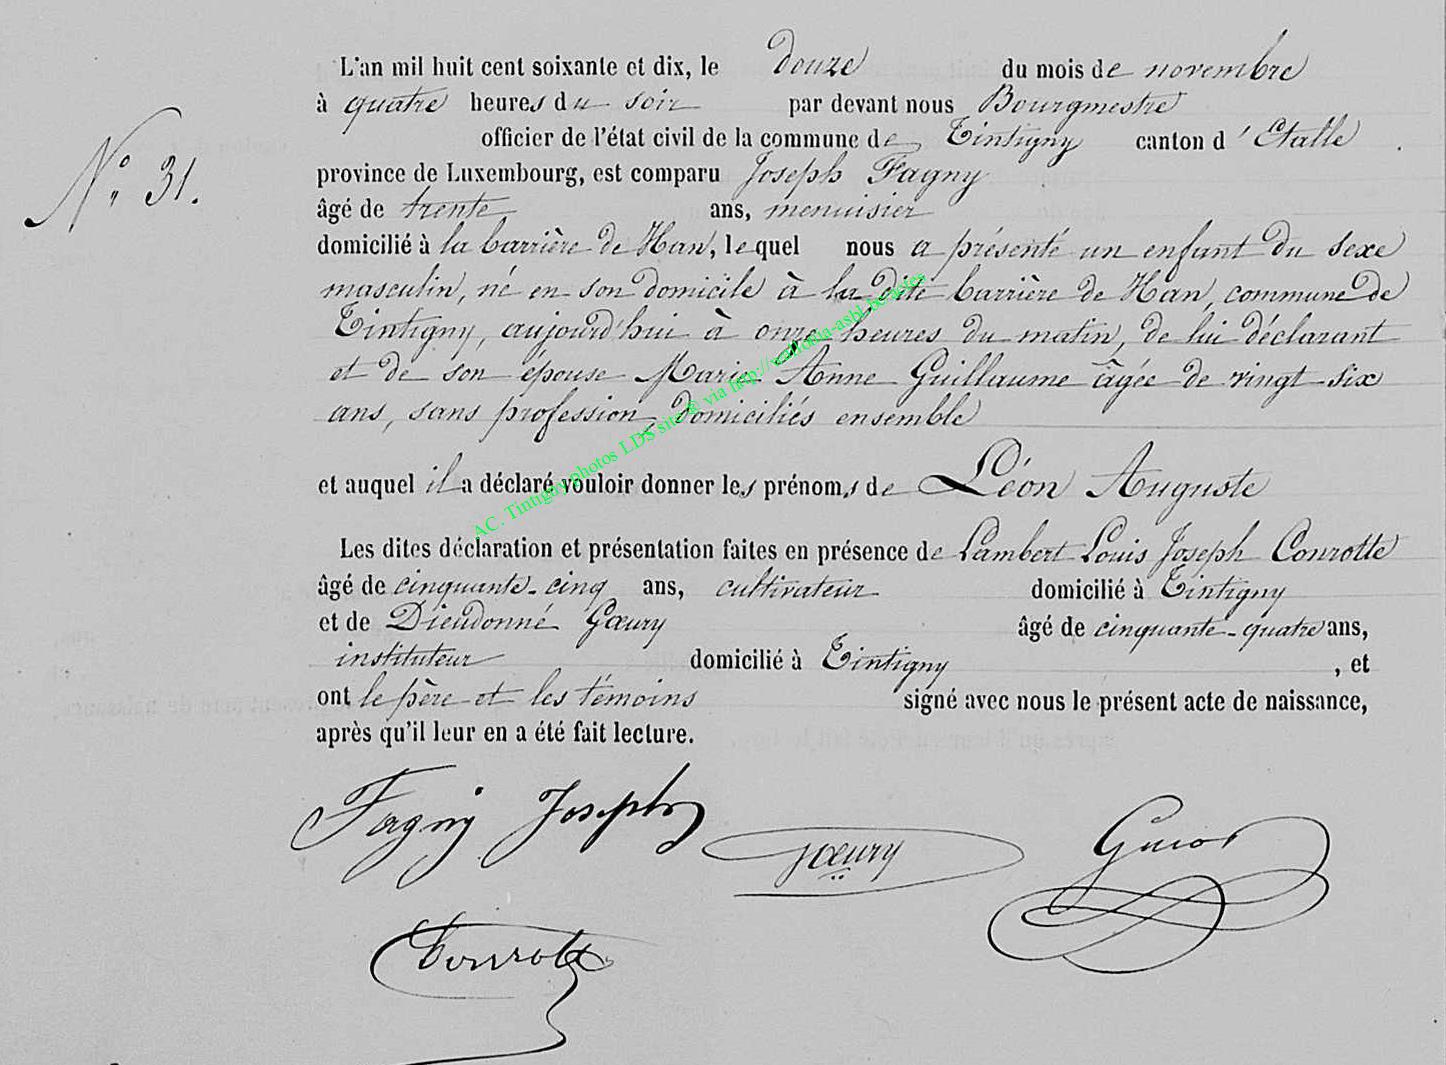 L'an mil huit cent soixante et dix, le douze du mois de novembre
à quatre heures du soir par devant nous Bourgmestre
officier de l'état civil de la commune de Tintigny canton d'Etalle
N° 31.
province de Luxembourg, est comparu Joseph Fagny
âgé de trente ans, menuisier
domicilié à la barrière de Han, lequel nous a présenté un enfant du sexe
masculin, né en son domicile à la dite barrière de Han, commune de
Tintigny, aujourd'hui à onze heures du matin, de lui déclarant
et de son épouse Marie Anne Guillaume âgée de vingt-six
ans, sans profession, domiciliés ensemble
AC. Tintigny photos LDS site & via http://wallonia-asbl-be/actes
et auquel il a déclaré vouloir donner les prénoms de Léon Auguste
Les dites déclaration et présentation faites en présence de Lambert Louis Joseph Conrotte
âgé de cinquante-cinq ans, cultivateur domicilié à Tintigny
et de Dieudonné Gœury âgé de cinquante-quatre ans,
instituteur domicilié à Tintigny , et
ont le père et les témoins signé avec nous le présent acte de naissance,
après qu'il leur en a été fait lecture.
Fagny Joseph
Gœury
Guiot
Conrotte